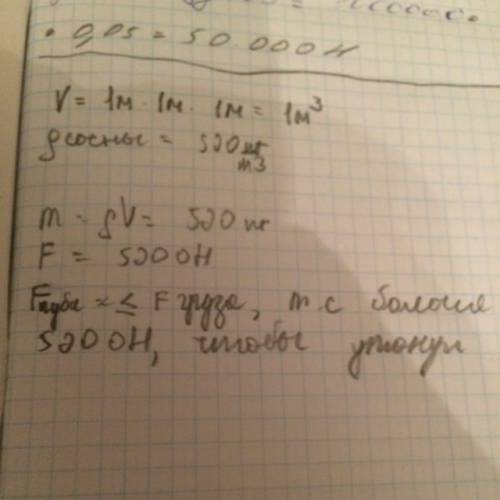 • 0,05 = 50 000Н
V = 1м · 1м · 1м = 1м³
ρ сосны = 520 кг/м3
m = ρV = 520 кг
F = 5200Н
Fкуба ≤ F груза, т.е больше
5200Н, чтобы утонул